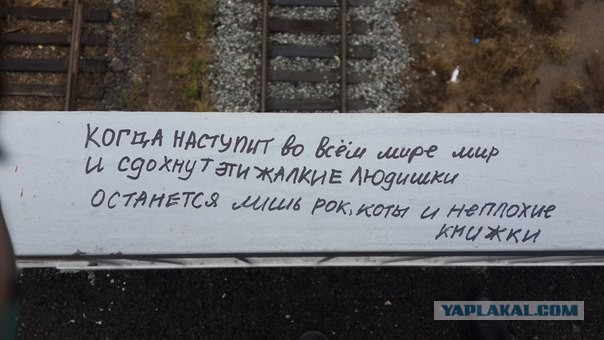 КОГДА НАСТУПИТ во всём мире мир
И СДОХНУТ ЭТИ ЖАЛКИЕ ЛЮДИШКИ
ОСТАНЕТСЯ лишь РОК, КОТЫ И НЕПЛОХИЕ
КНИЖКИ
YAPLAKAL.COM